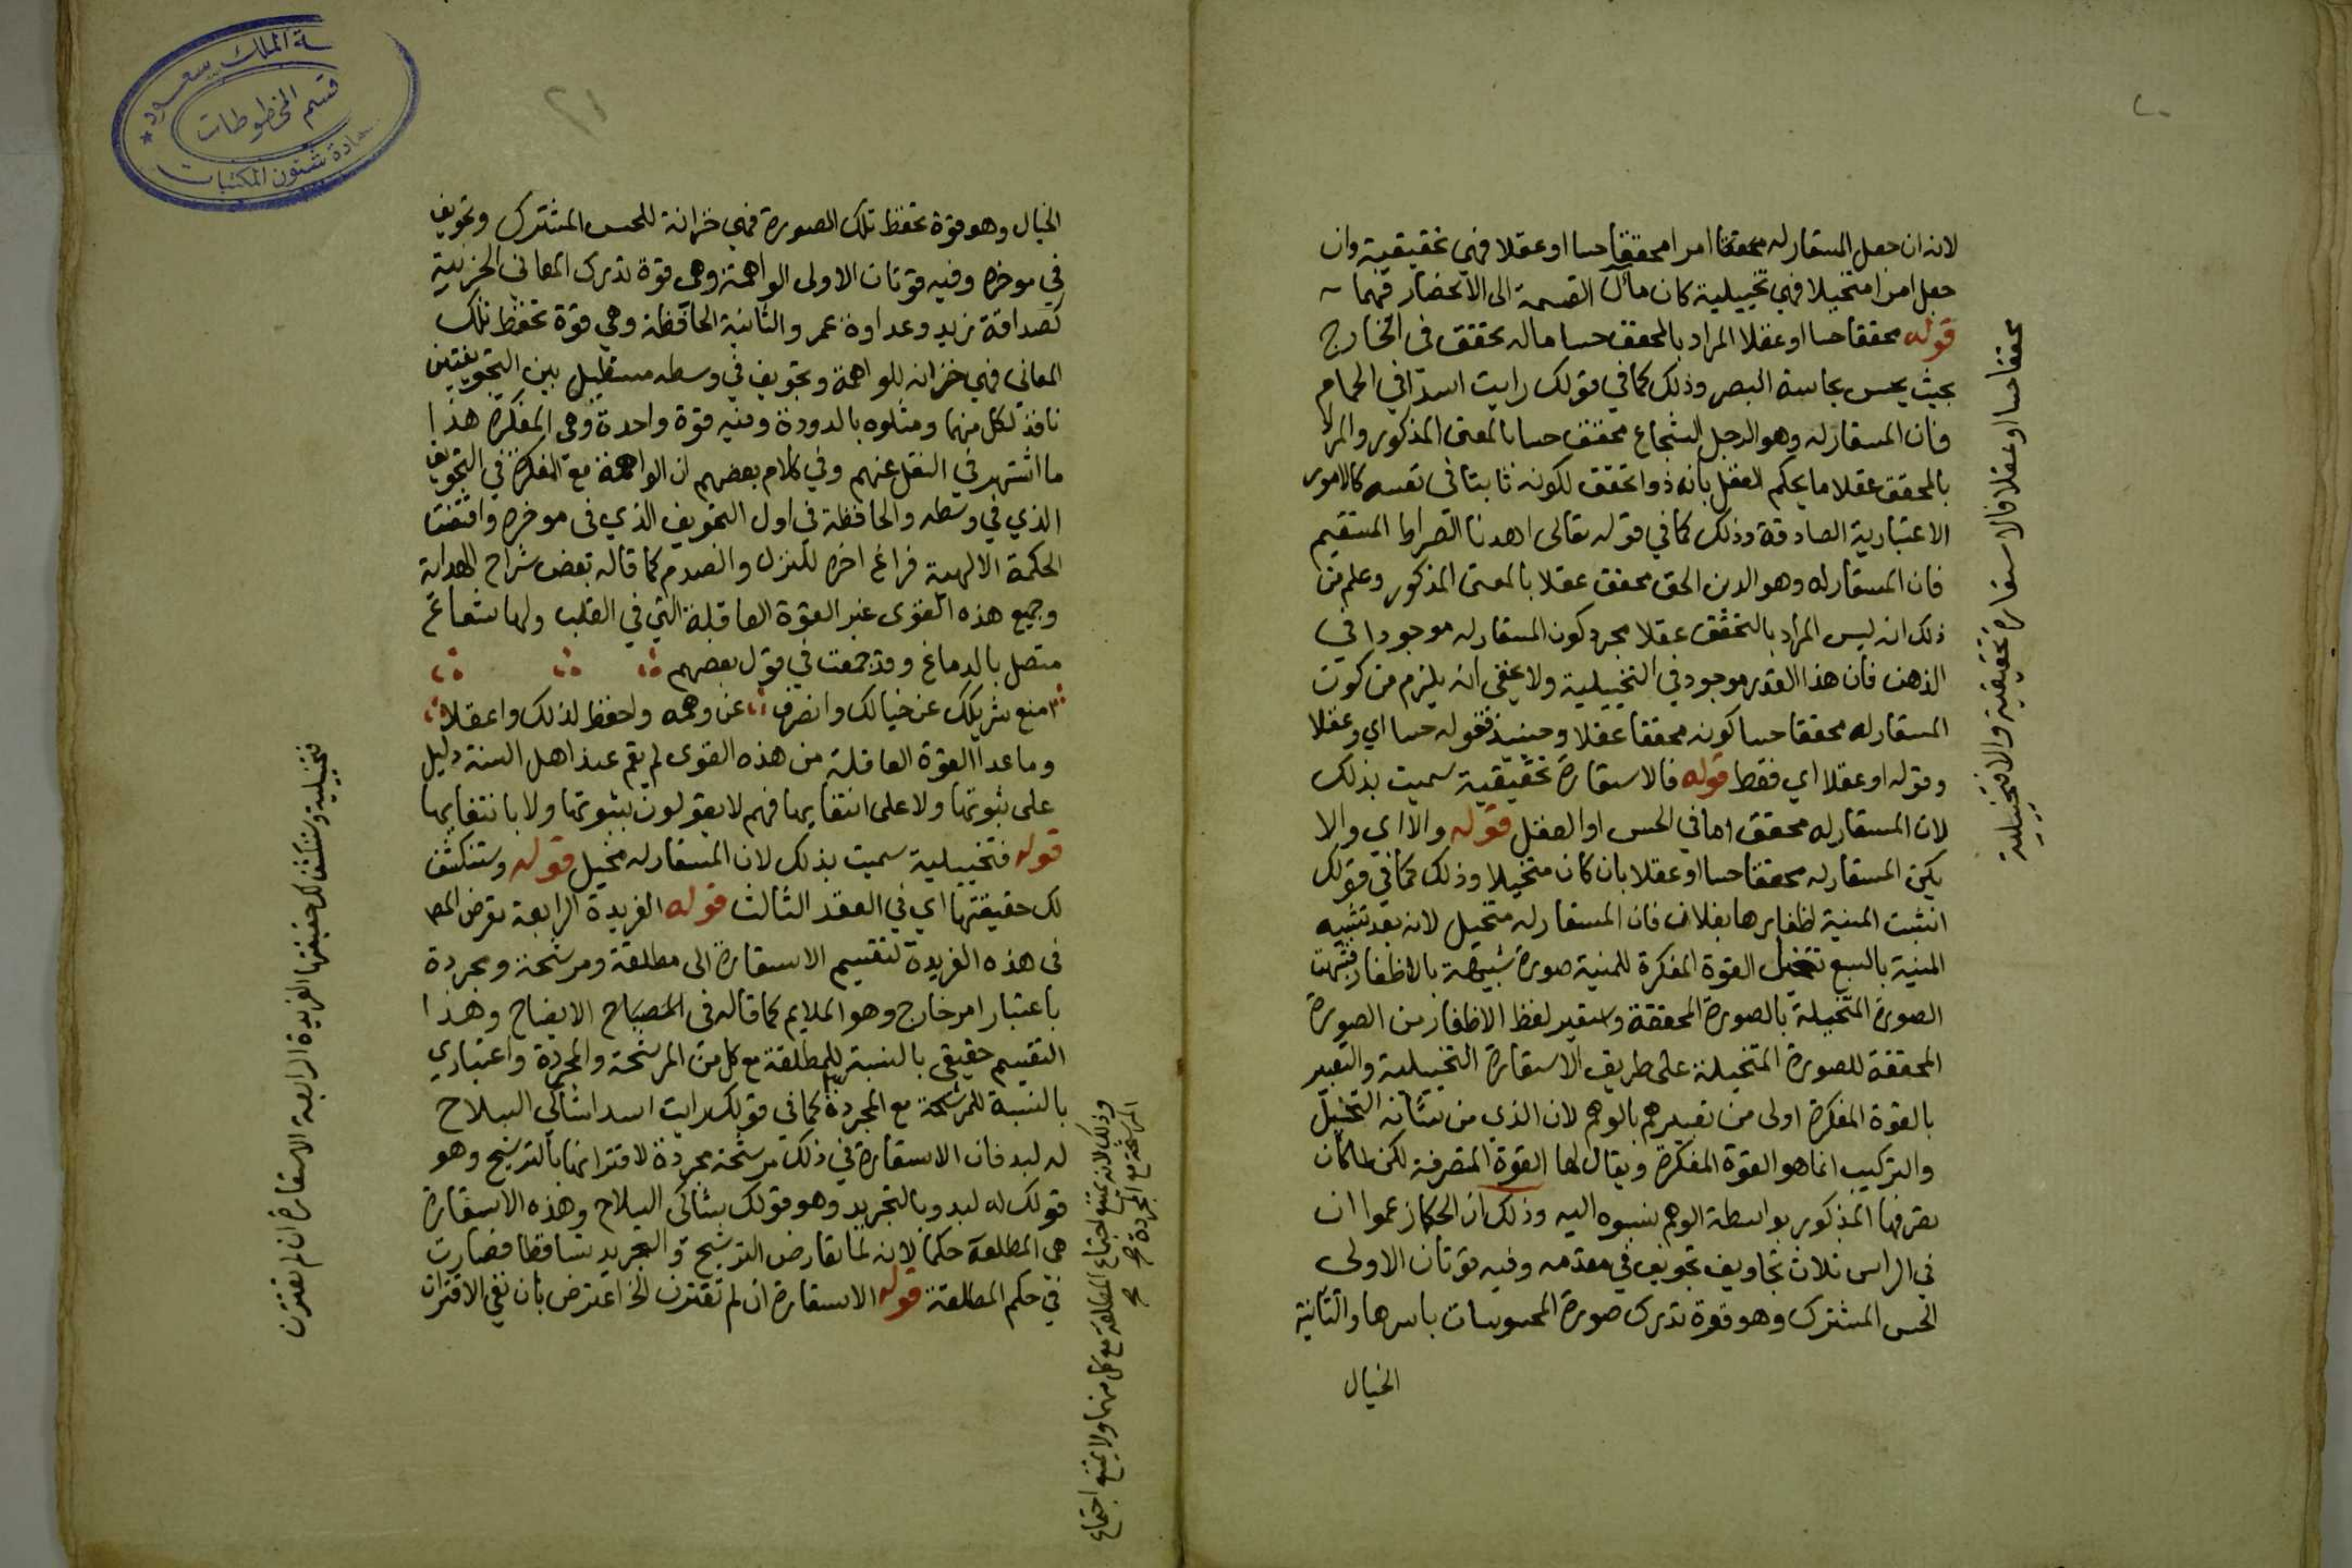 لانه ان جعل المستعار له محققا امرا محققا حسا او عقلا فهي تحقيقية وان
جعل امرا متخيلا فهي تخييلية كان مآل القسمة الى الانحصار فيهما
قوله محققا حسا او عقلا المراد بالمحقق حسا ماله تحقق في الخارج
بحيث يحس بحاسة البصر وذلك كما في قولك رايت اسدا في الحمام
فان المستعار له وهو الرجل الشجاع محقق حسا بالمعنى المذكور والمراد
بالمحقق عقلا ما يحكم العقل بانه ذو تحقق لكونه ثابتا في نفسه كالامور
الاعتبارية الصادقة وذلك كما في قوله تعالى اهدنا الصراط المستقيم
فان المستعار له وهو الدين الحق محقق عقلا بالمعنى المذكور وعلم من
ذلك انه ليس المراد بالتحقق عقلا مجرد كون المستعار له موجودا في
الذهن فان هذا القدر موجود في التخييلية ولا يخفى انه يلزم من كون
المستعار له محققا حسا كونه محققا عقلا وحينئذ فقوله حسا اي وعقلا
وقوله او عقلا اي فقط قوله فالاستعارة تحقيقية سميت بذلك
لان المستعار له محقق اما في الحس او العقل قوله والا اي والا
يكن المستعار له محققا حسا او عقلا بان كان متخيلا وذلك كما في قولك
انشبت المنية اظفارها بفلان فان المستعار له متخيل لانه بعد تشبيه
المنية بالسبع تتخيل القوة المفكرة للمنية صورة شبيهة بالاظفار فشبهت
الصورة المتخيلة بالصورة المحققة واستعير لفظ الاظفار من الصورة
المحققة للصورة المتخيلة على طريق الاستعارة التخييلية والتعبير
بالقوة المفكرة اولى من تعبيرهم بالوهم لان الذي من شانه التخيل
والتركيب انما هو القوة المفكرة ويقال لها القوة المتصرفة لكن لما كان
تصرفها المذكور بواسطة الوهم نسبوه اليه وذلك ان الحكما زعموا ان
في الراس ثلاث تجاويف تجويف في مقدمه وفيه قوتان الاولى
الحس المشترك وهو قوة تدرك صورة المحسوسات باسرها والثانية
الخيال
محققا حسا او عقلا فالاستعارة تحقيقية والا فتخييلية
الخيال وهو قوة تحفظ تلك الصورة فهي خزانة للحس المشترك وتجويف
في موخره وفيه قوتان الاولى الواهمة وهي قوة تدرك المعاني الجزيية
كصداقة زيد وعداوة عمر والثانية الحافظة وهي قوة تحفظ تلك
المعاني فهي خزانة للواهمة وتجويف في وسطه مستطيل بين التجويفين
نافذ لكل منهما ومثلوه بالدودة وفيه قوة واحدة وهي المفكرة هذا
ما اشتهر في النقل عنهم وفي كلام بعضهم ان الواهمة مع المفكرة في التجويف
الذي في وسطه والحافظة في اول التجويف الذي في موخره واقتضت
الحكمة الالهية فراغ اخره للنزل والصدم كما قاله بعض شراح الهداية
وجميع هذه القوى غير القوة العاقلة التي في القلب ولها شعاع
متصل بالدماغ وقد جمعت في قول بعضهم
امنع شريكك عن خيالك وانصرف عن وهمه واحفظ لذلك واعقلا
وما عدا القوة العاقلة من هذه القوى لم يقم عند اهل السنة دليل
على ثبوتها ولا على انتفايها فهم لا يقولون بثبوتها ولا بانتفايها
قوله فتخييلية سميت بذلك لان المستعار له مخيل قوله وستنكشف
لك حقيقتها اي في العقد الثالث قوله الفريدة الرابعة تعرض المص
في هذه الفريدة لتقسيم الاستعارة الى مطلقة ومرشحة ومجردة
باعتبار امر خارج وهو الملايم كما قاله في المصباح الايضاح وهذا
التقسيم حقيقي بالنسبة للمطلقة مع كل من المرشحة والمجردة واعتباري
بالنسبة للمرشحة مع المجردة كما في قولك رايت اسدا شاكي السلاح
له لبد فان الاستعارة في ذلك مرشحة مجردة لاقترانها بالترشيح وهو
قولك له لبد وبالتجريد وهو قولك شاكي السلاح وهذه الاستعارة
هي المطلقة حكما لانه لما تعارض الترشيح والتجريد تساقطا فصارت
في حكم المطلقة قوله الاستعارة ان لم تقترن الخ اعترض بان نفي الاقتران
وذلك لانه يمتنع اجتماع المطلقة مع كل منهما ولا يمتنع اجتماع
المرشحة مع المجردة صح
فتخييلية وستنكشف لك حقيقتها الفريدة الرابعة الاستعارة ان لم تقترن
٢٠
٢١
قسم المخطوطات
عمادة شئون المكتبات